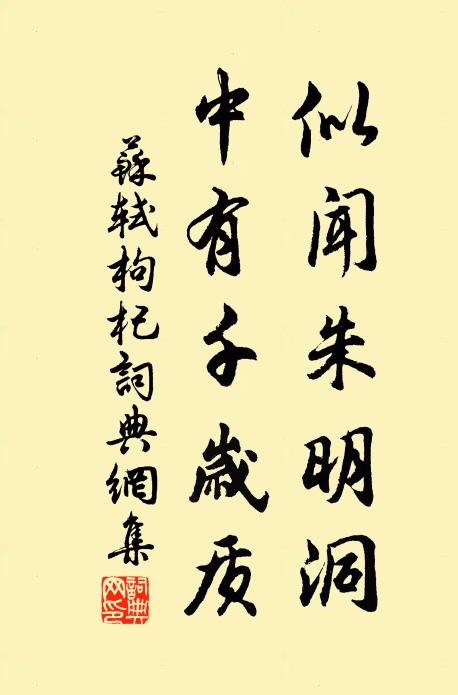 似闻朱明洞
中有千歳质
蘇軾枸杞詞典網集
詞典網印